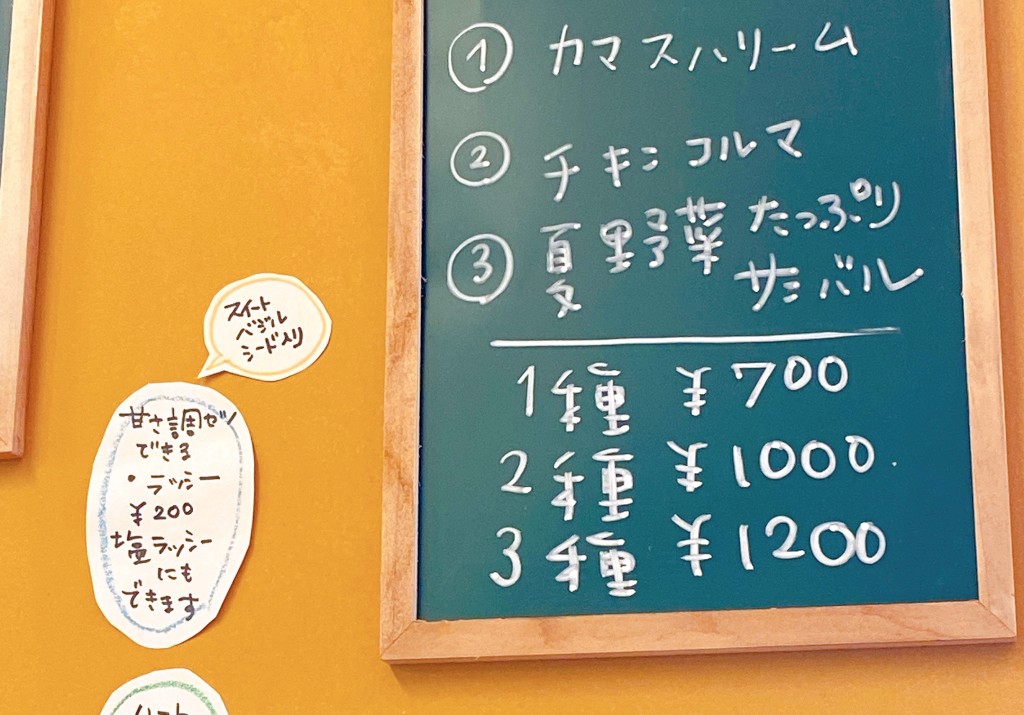 ① カマスハリーム
② チキンコルマ
③ 夏野菜たっぷり
サンバル
1種 ¥700
2種 ¥1000
3種 ¥1200
スイート
バジル
シード入り
甘さ調セツ
できる
・ラッシー
¥200
塩ラッシー
にも
できます